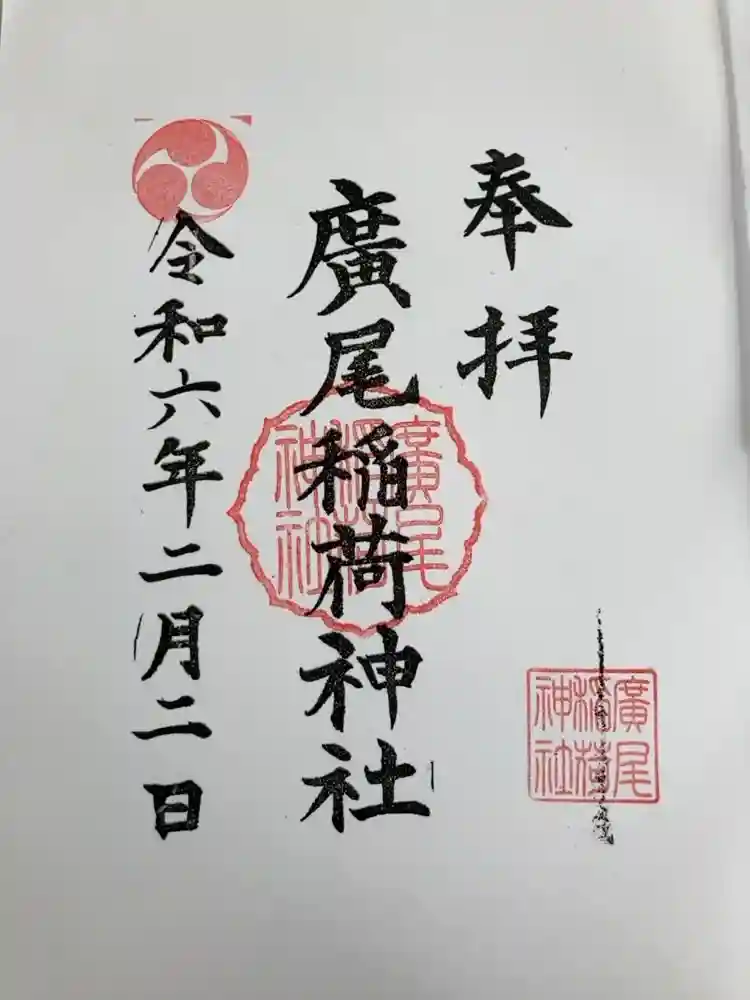 奉拝
廣尾稲荷神社
廣尾稲荷神社
令和六年二月二日
廣尾稲荷神社